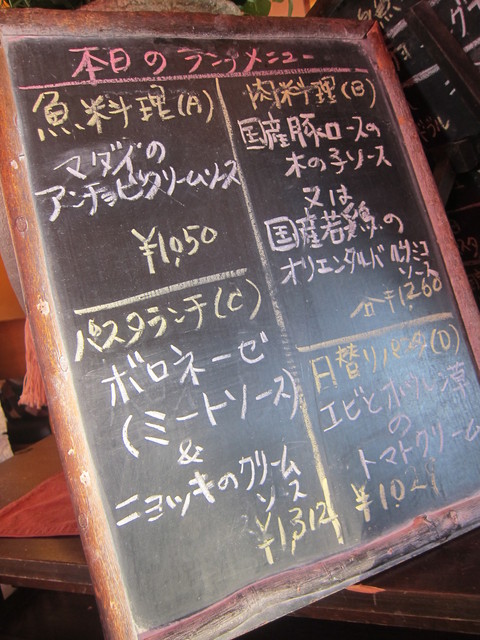 本日のランチメニュー
魚料理(A)
マダイの
アンチョビクリームソース
¥1,050
肉料理(B)
国産豚ロースの
木の子ソース
又は
国産若鶏の
オリエンタルバルサミコ
ソース
¥1,260
パスタランチ(C)
ボロネーゼ
(ミートソース)
&
ニョッキのクリーム
ソース
¥1,312
日替りパスタ(D)
エビとホウレン草
の
トマトクリーム